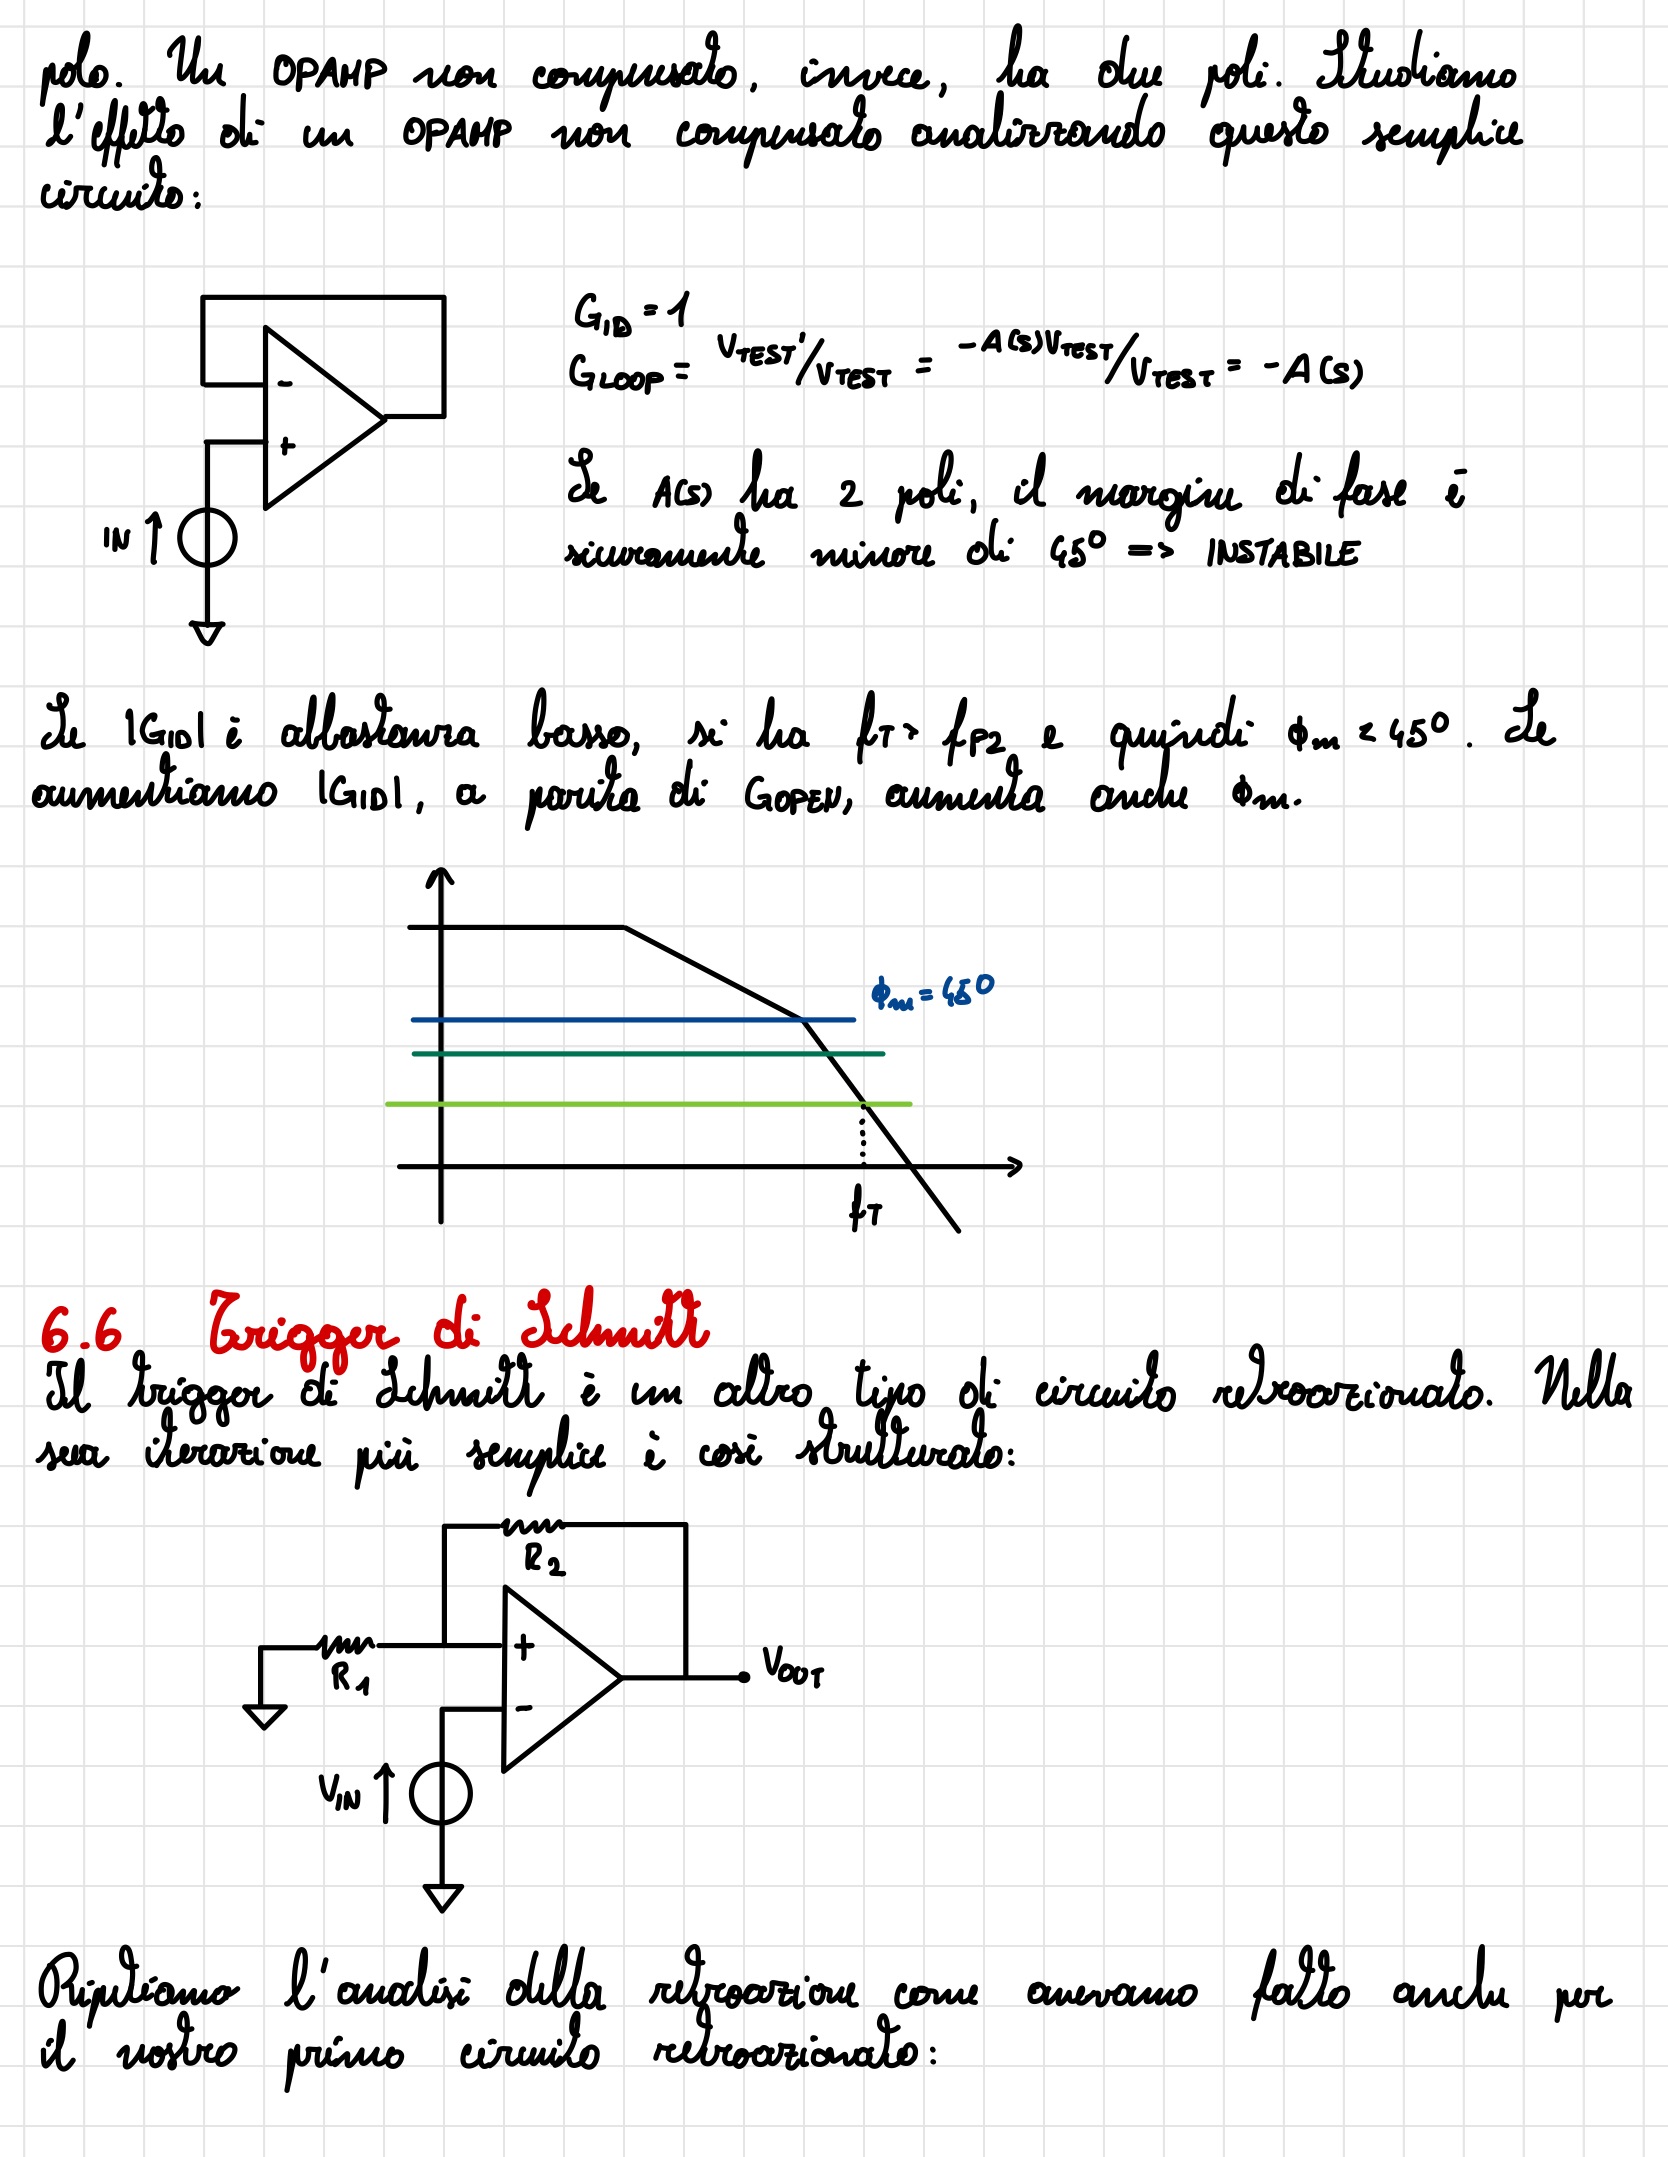 polo. Un OPAMP non compensato, invece, ha due poli. Studiamo
l'effetto di un OPAMP non compensato analizzando questo semplice
circuito:
G_ID = 1
G_LOOP = V_TEST'/V_TEST = -A(s)V_TEST/V_TEST = -A(s)
-
+
IN
Se A(s) ha 2 poli, il margine di fase è
sicuramente minore di 45° => INSTABILE
Se |G_ID| è abbastanza basso, si ha f_T > f_P2 e quindi ϕ_m < 45°. Se
aumentiamo |G_ID|, a parità di G_OPEN, aumenta anche ϕ_m.
ϕ_m = 45°
f_T
6.6 Trigger di Schmitt
Il trigger di Schmitt è un altro tipo di circuito retroazionato. Nella
sua iterazione più semplice è così strutturato:
R_2
+
R_1
V_OUT
-
V_IN
Ripetiamo l'analisi della retroazione come avevamo fatto anche per
il nostro primo circuito retroazionato: